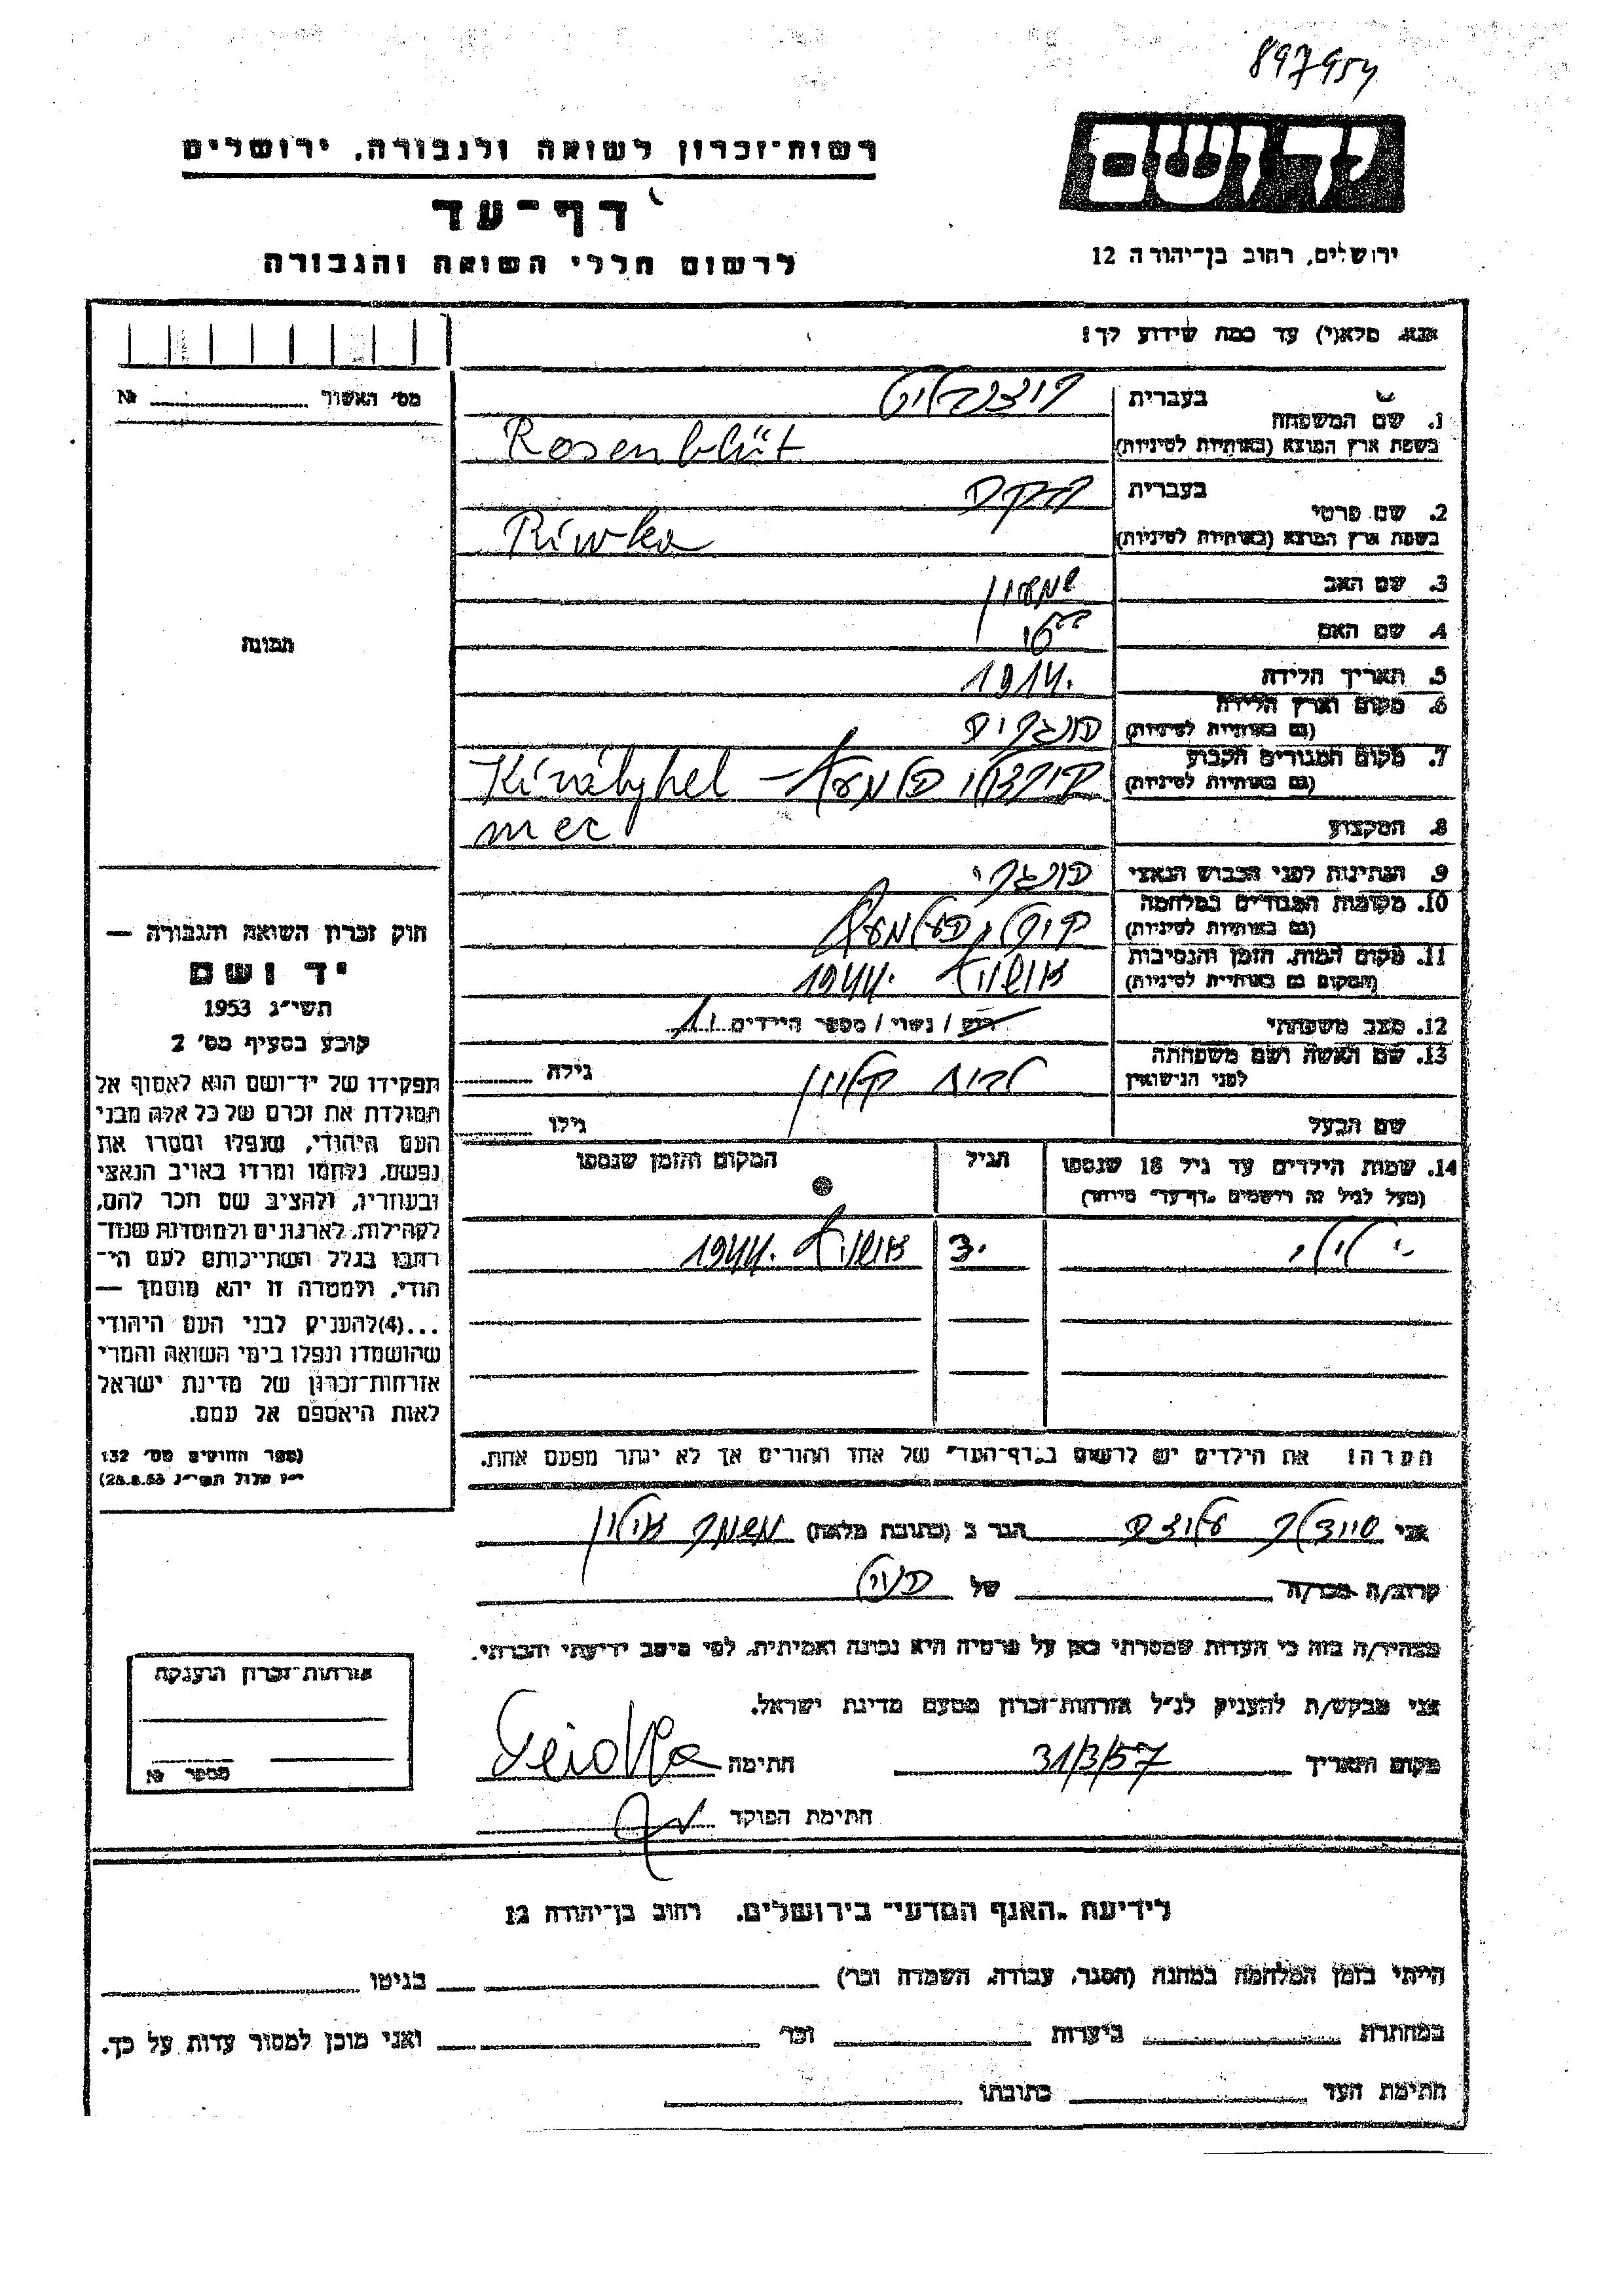 897954
רשות־זכרון לשואה ולגבורה, ירושלים
דף־עד
לרשום חללי השואה והגבורה
יד ושם
ירושלים, רחוב בן־יהודה 12
אנא מלא(י) עד כמה שידוע לך!
מס׳ האשור № 
בעברית רוזנבליט
1. שם המשפחה
בשפת ארץ המוצא (באותיות לטיניות) Rosenblüt
בעברית רבקה
2. שם פרטי
בשפת ארץ המוצא (באותיות לטיניות) Riwka
3. שם האב שמעון
4. שם האם
5. תאריך הלידה 1914.
6. מקום וארץ הלידה הונגריה
(גם באותיות לטיניות)
7. מקום המגורים הקבוע Királyhel
(גם באותיות לטיניות) mec
8. המקצוע
9. הנתינות לפני הכבוש הנאצי הונגרי
10. מקומות המגורים במלחמה
(גם באותיות לטיניות)
11. מקום המות, הזמן והנסיבות אושויץ 1944.
(המקום גם באותיות לטיניות)
12. מצב משפחתי רוק / נשוי / מספר הילדים 1
13. שם האשה ושם משפחתה גילה
לפני הנישואין
שם הבעל גילו
14. שמות הילדים עד גיל 18 שנספו הגיל המקום והזמן שנספו
(מעל לגיל זה רושמים "דף־עד" מיוחד)
3. אושויץ 1944.
הערה! את הילדים יש לרשום ב"דף־העד" של אחד ההורים אך לא יותר מפעם אחת.
תמונה
חוק זכרון השואה והגבורה —
יד ושם
תשי״ג 1953
קובע בסעיף מס׳ 2
תפקידו של יד־ושם הוא לאסוף אל
המולדת את זכרם של כל אלה מבני
העם היהודי, שנפלו ומסרו את
נפשם, נלחמו ומרדו באויב הנאצי
ובעוזריו, ולהציב שם וזכר להם,
לקהילות, לארגונים ולמוסדות שנח־
רבו בגלל השתייכותם לעם הי־
הודי, ולמטרה זו יהא מוסמך —
...(4) להעניק לבני העם היהודי
שהושמדו ונפלו בימי השואה והמרי
אזרחות־זכרון של מדינת ישראל
לאות היאספם אל עמם.
(ספר החוקים מס׳ 132
י״ז אלול תשי״ג 28.8.53)
אני הגר ב (כתובת מלאה) משמר אילון
קרוב/ה מכר/ה של הנ״ל
מצהיר/ה בזה כי העדות שמסרתי כאן על פרטיה היא נכונה ואמיתית, לפי מיטב ידיעתי והכרתי.
אני מבקש/ת להעניק לנ״ל אזרחות־זכרון מטעם מדינת ישראל.
מקום ותאריך 31/3/57 חתימה
חתימת הפוקד
אזרחות־זכרון הוענקה
מספר №
לידיעת "האגף המדעי" בירושלים, רחוב בן־יהודה 12
הייתי בזמן המלחמה במחנה (הסגר, עבודה, השמדה וכו׳) בגיטו
במחתרת ביערות וכו׳ ואני מוכן למסור עדות על כך.
חתימת העד כתובתו